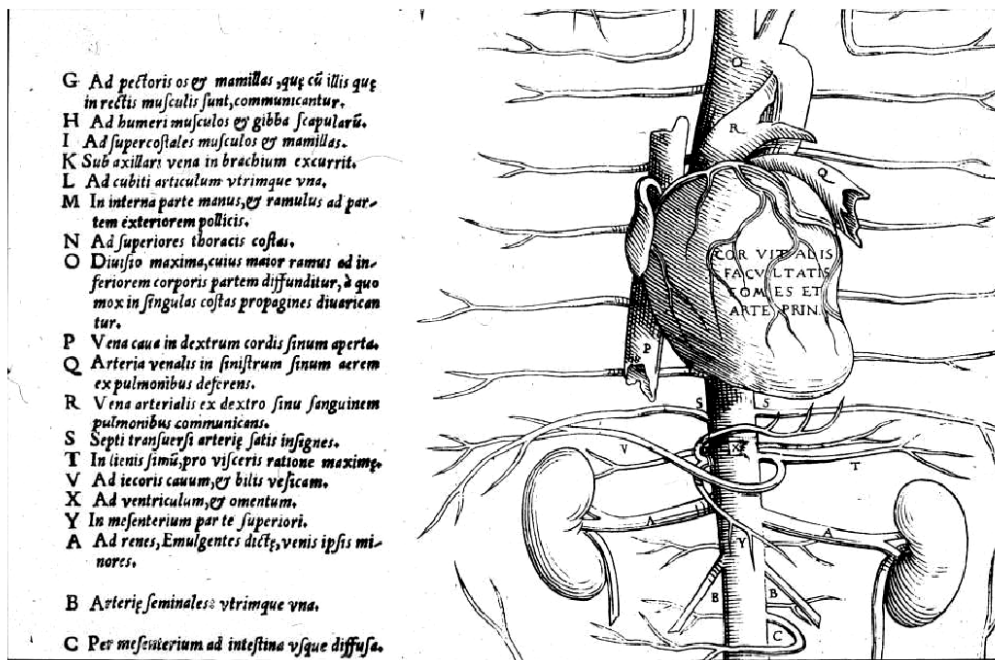 G Ad pectoris os & mamillas, quę cū illis quę
in rectis musculis sunt, communicantur.
H Ad humeri musculos & gibba scapularū.
I Ad supercostales musculos & mamillas.
K Sub axillari vena in brachium excurrit.
L Ad cubiti articulum vtrimque vna.
M In interna parte manus, & ramulus ad par-
tem exteriorem pollicis.
N Ad superiores thoracis costas.
O Diuisio maxima, cuius maior ramus ad in-
feriorem corporis partem diffunditur, à quo
mox in singulas costas propagines diuarican
tur.
P Vena caua in dextrum cordis sinum aperta.
Q Arteria venalis in sinistrum sinum aerem
ex pulmonibus deferens.
R Vena arterialis ex dextro sinu sanguinem
pulmonibus communicans.
S Septi transuersi arterię satis insignes.
T In lienis simū, pro visceris ratione maximę.
V Ad iecoris cauum, & bilis vesicam.
X Ad ventriculum, & omentum.
Y In mesenterium parte superiori.
A Ad renes, Emulgentes dictę, venis ipsis mi-
nores.
B Arterię seminales vtrimque vna.
C Per mesenterium ad intestina vsque diffusa.
O
R
Q
COR VITALIS
FACVLTATIS
COMES ET
ARTE PRIN.
P
S S
V X T
A A
Y
B B
C